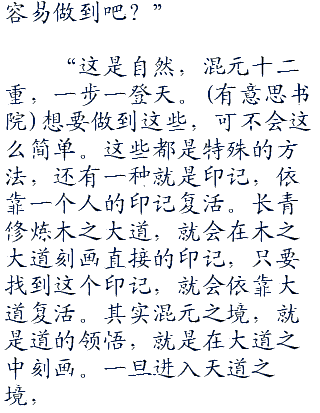 容易做到吧？”
“这是自然，混元十二
重，一步一登天。(有意思书
院)想要做到这些，可不会这
么简单。这些都是特殊的方
法，还有一种就是印记，依
靠一个人的印记复活。长青
修炼木之大道，就会在木之
大道刻画直接的印记，只要
找到这个印记，就会依靠大
道复活。其实混元之境，就
是道的领悟，就是在大道之
中刻画。一旦进入天道之
境，